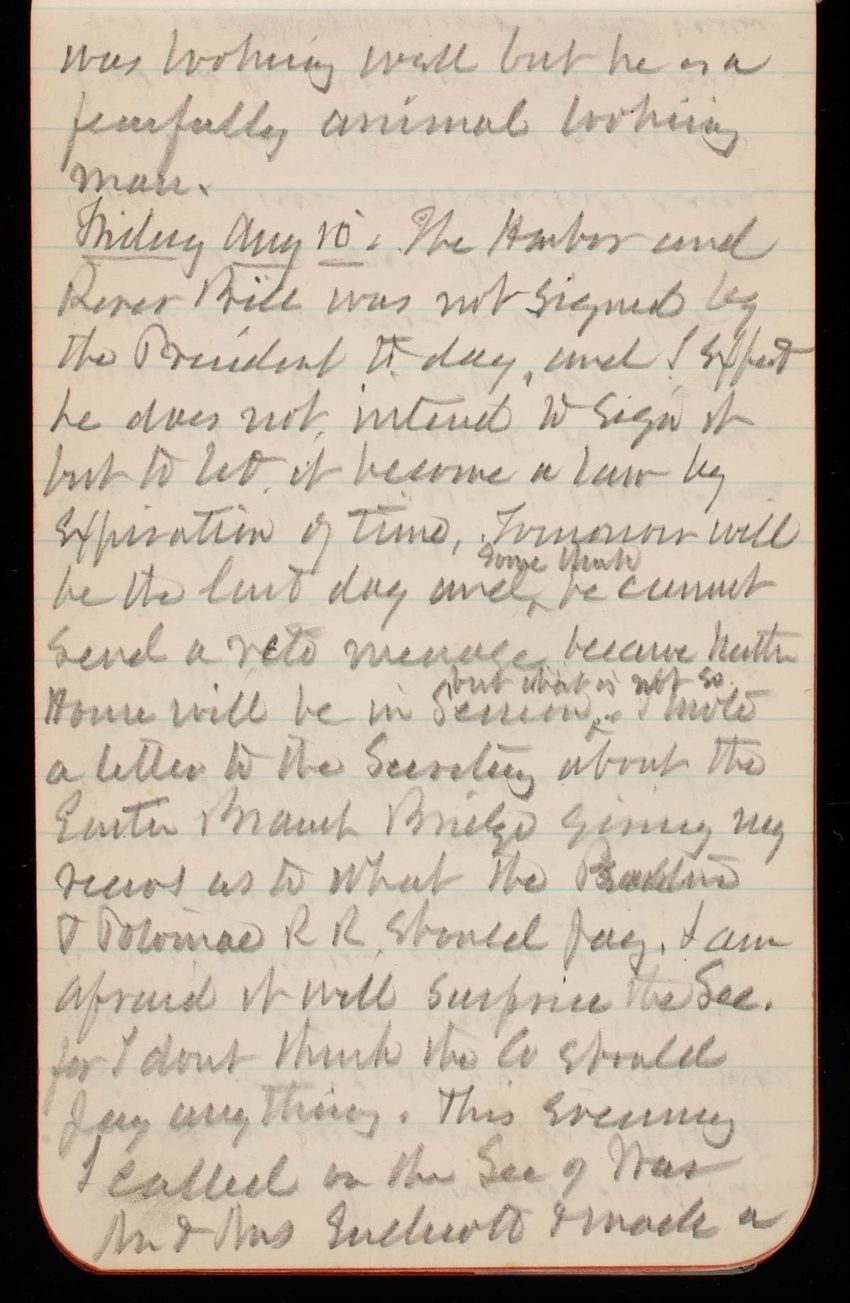 was looking well but he is a
fearfully animal looking
man.
Friday Aug 10. The Harbor and
River Bill was not signed by
the President to day, and I expect
he does not intend to sign it
but to let it become a law by
expiration of time, Tomorrow will
some think
be the last day and he cannot
send a veto message because neither
but that is not so
House will be in Session. I wrote
a letter to the Secretary about the
Easter Branch Bridge giving my
views as to what the
& Potomac R R should pay. I am
afraid it will surprise the Sec.
for I dont think the Co should
pay anything. This evening
I called on the Sec of War
Mr & Mrs Endicott & made a